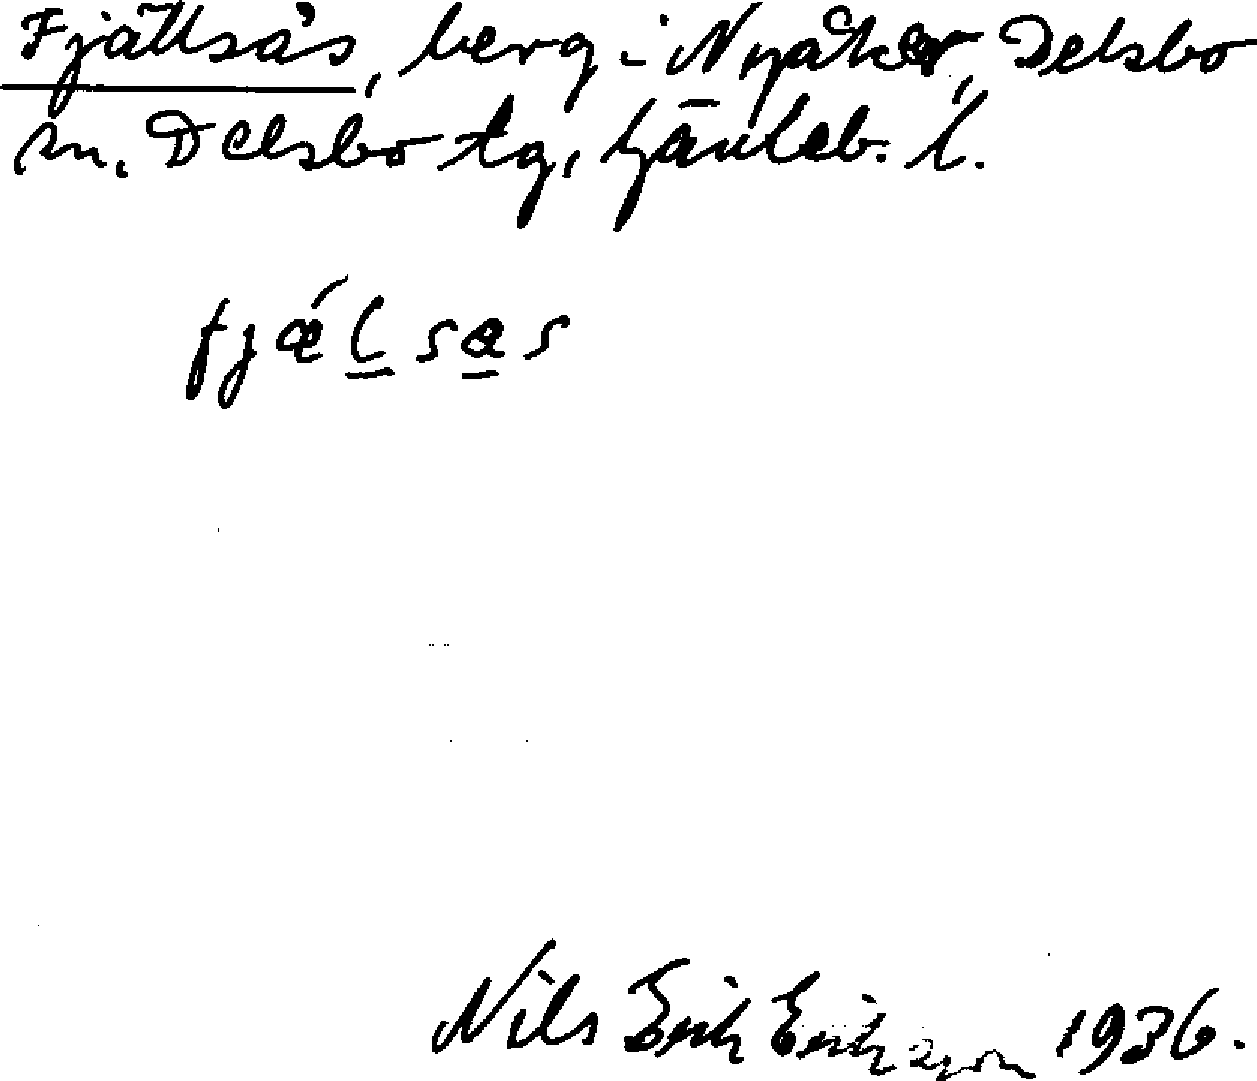 Fjällsås, berg i Nyåker, Delsbo
sn. Delsbo tg, Gävleb. l.
fjǽlsas
Nils Erik Eriksson 1936.